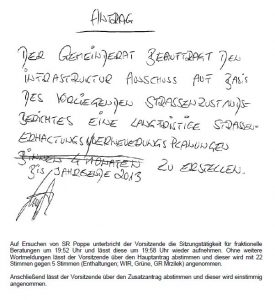 ANTRAG
DER GEMEINDERAT BEAUFTRAGT DEN
INFRASTRUKTUR AUSSCHUSS AUF BASIS
DES VORLIEGENDEN STRASSENZUSTANDS-
BERICHTES EINE LANGFRISTIGE STRASSEN-
ERHALTUNGS/ERNEUERUNGSPLANUNGEN
BINNEN 4 MONATEN
BIS JAHRESENDE 2013 ZU ERSTELLEN.
Auf Ersuchen von SR Poppe unterbricht der Vorsitzende die Sitzungstätigkeit für fraktionelle
Beratungen um 19:52 Uhr und lässt diese um 19:58 Uhr wieder aufnehmen. Ohne weitere
Wortmeldungen lässt der Vorsitzende über den Hauptantrag abstimmen und dieser wird mit 22
Stimmen gegen 5 Stimmen (Enthaltungen; WIR, Grüne, GR Mrzilek) angenommen.
Anschließend lässt der Vorsitzende über den Zusatzantrag abstimmen und dieser wird einstimmig
angenommen.